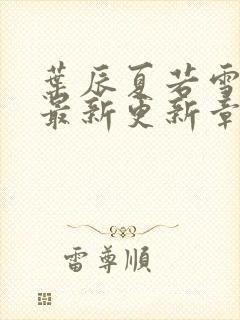 葉辰夏若雪
最新更新章
雷尊順